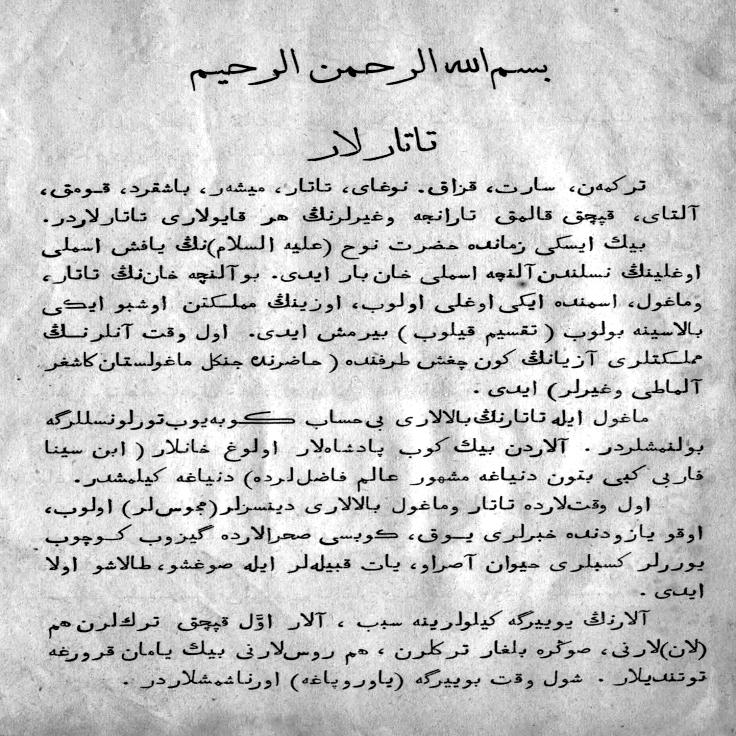 بسم الله الرحمن الرحيم
تاتار لار
تركمەن، سارت، قزاق. نوغاى، تاتار، ميشەر، باشقرد، قومق،
آلتاى، قپچق قالمق تارانچه وغيرلرنڭ هر قايولارى تاتارلاردر.
بيك ايسكى زمانده حضرت نوح (عليه السلام)نڭ يافش اسملى
اوغلينڭ نسلندن آلنچه اسملى خان بار ايدى. بو آلنچه خان‌نڭ تاتار،
وماغول، اسمنده ايكى اوغلى اولوب، اوزينڭ مملكتن اوشبو ايكى
بالاسينه بولوب (تقسيم قيلوب) بيرمش ايدى. اول وقت آنلرنڭ
مملكتلرى آزيانڭ كون چغش طرفنده (حاضرنده جنكل ماغولستان كاشغر
آلماطى وغيرلر) ايدى.
ماغول ايله تاتارنڭ بالالارى بى حساب كوبه‌يوب تورلو نسللرگه
بولنمشلردر. آلاردن بيك كوب پادشاه‌لار اولوغ خانلار (ابن سينا
فاربى كبى بتون دنياغه مشهور عالم فاضل‌لرده) دنياغه كيلمشدر.
اول وقت‌لارده تاتار وماغول بالالارى دينسزلر (مجوس‌لر) اولوب،
اوقو يازودنده خبرلرى يوق، كوبسى صحرالارده گيزوب كوچوب
يوررلر كسبلرى حيوان آصراو، يات قبيله‌لر ايله صوغشو، طالاشو اولا
ايدى.
آلارنڭ يوييرگه كيلولرينه سبب، آلار اوّل قپچق ترك‌لرن هم
(لان)لارنى، صوڭره بلغار تركلرن، هم روس‌لارنى بيك يامان قرورغه
توتنديلار. شول وقت بوييرگه (ياوروپاغه) اورناشمشلاردر.